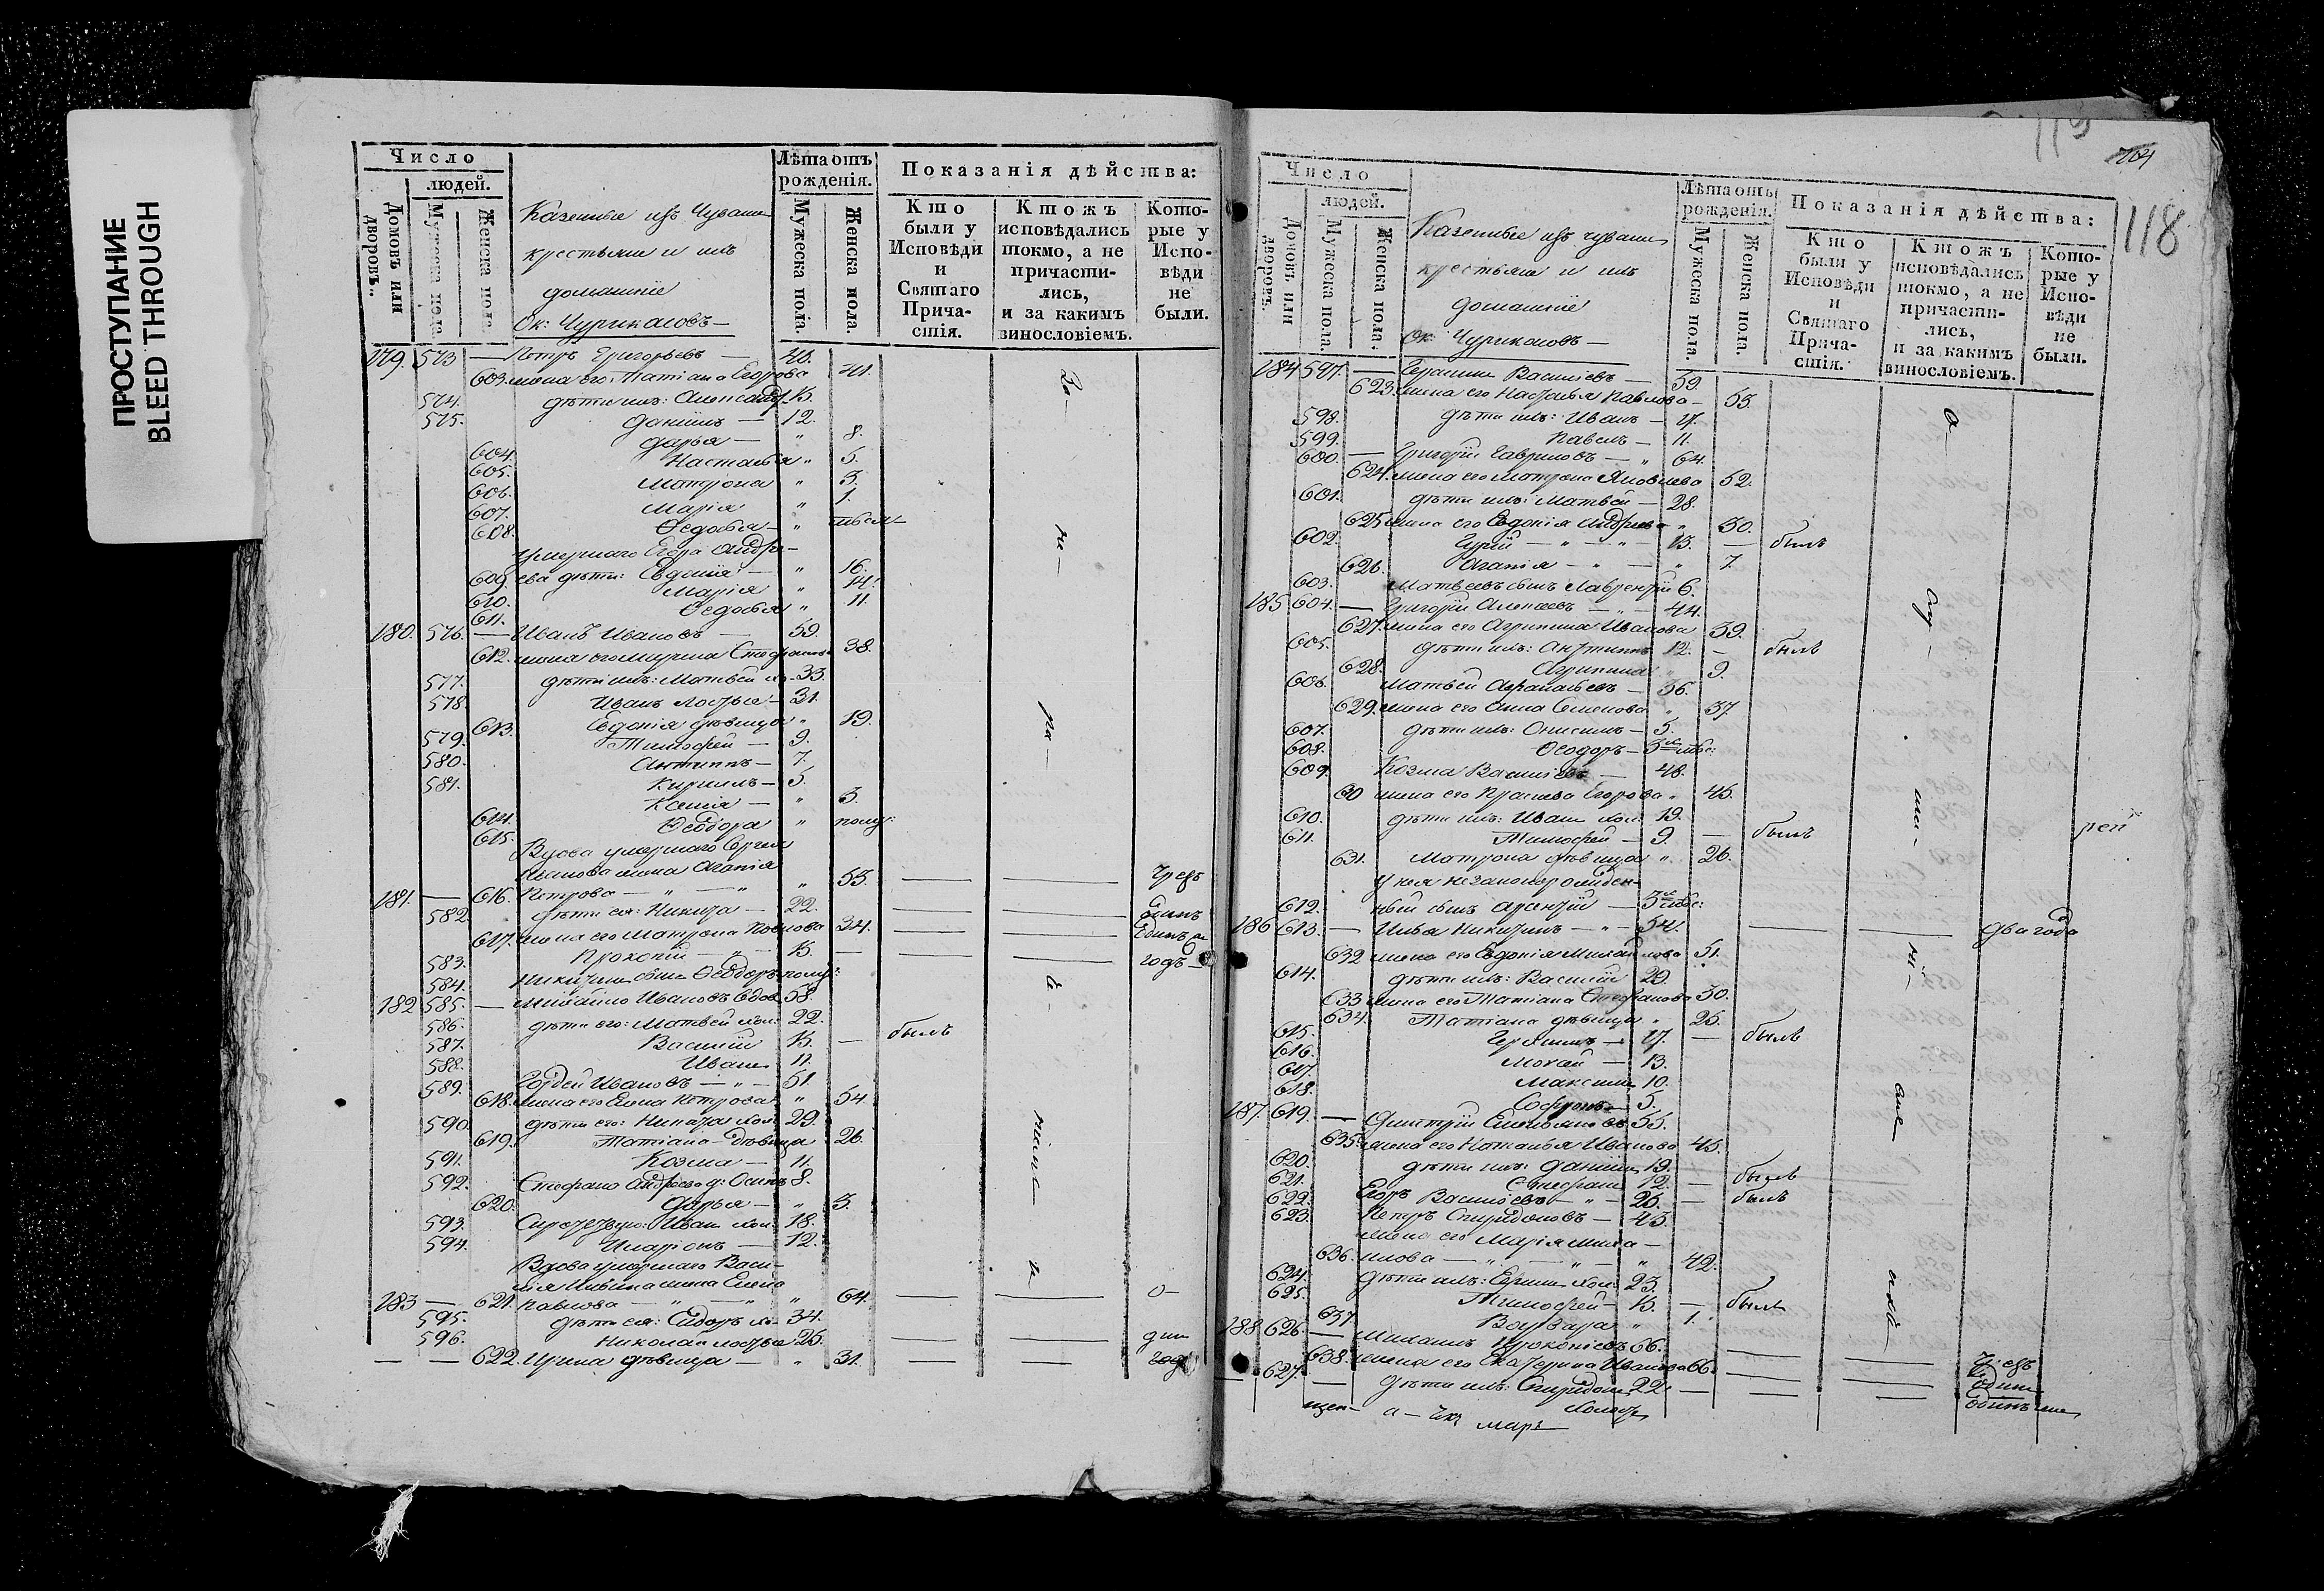 ПРОСТУПАНИЕ
BLEED THROUGH
Число
людей.
Домовъ или дворовъ.
Мужеска пола.
Женска пола.
Казенные изъ Чувашъ
крестьяне и ихъ
домашніе
Ок: Чурикасовъ —
Лѣта отъ рожденія.
Мужеска пола.
Женска пола.
Показанія дѣйства:
Кто были у Исповѣди и Святаго Причастія.
Ктожъ исповѣдались токмо, а не причастились, и за какимъ винословіемъ.
Которые у Исповѣди не были.
179. 573 — Петръ Григорьевъ — 40.
603. жена его Татіана Егорова 41.
574. дѣти ихъ: Александръ 15.
575. Даніилъ — 12.
604. Дарья — " 8.
605. Настасья " 5.
606. Матрона " 3.
607. Марія " 1.
608. Ѳедосья — "
Умершаго Егора Андре-
609. ева дѣти: Евдокія — " 16.
610. Марія " 14.
611. Ѳедосья " 11.
180. 576. — Иванъ Ивановъ — 59.
612. жена его Ирина Стефанова 38.
577. дѣти ихъ: Матвей хо. 33.
578. Иванъ холостъ — 31.
613. Евдокія дѣвица " 19.
579. Тимофей — 9.
580. Антипъ — 7.
581. Кирилъ — 5.
614. Ксенія — " 3.
615. Ѳеодора " полу:
Вдова умершаго Сергея
Иванова жена Агапія
181. — 616. Петрова — " — " " 53. — — чрезъ
582. дѣти ея: Никита — 22. — — одинъ
617. жена его Матрона 34. — —
583. Прокопій — " — 15. — — годъ —
584. Никитинъ сынъ Ѳеодоръ полу:
182 585. — Михайло Ивановъ вдов. 58.
586. дѣти его: Матвей хол: 22.
587. Василій 15. — былъ
588. Иванъ 11.
589. Гордей Ивановъ — " — 51.
618. жена его Елена Петрова " 54.
590. дѣти его: Никита хол: 29.
619. Татіана — дѣвица 26.
591. Козма — 11.
592. Стефана Андреева д: Осипъ 8.
620. Дарья — " 3.
593. Иванъ хол: 18.
594. Иларіонъ — 12.
Вдова умершаго Васи-
лія жена Елена
183 — 621. Павлова — " — " " 64. — — о —
595. дѣти ея: Сидоръ хо. 34.
596. Николай холостъ 25. — — дин
— — 622. Ирина дѣвица — " 31. — — годъ
За —
не —
ра —
Число
людей.
Домовъ или дворовъ.
Мужеска пола.
Женска пола.
Казенные изъ чувашъ
крестьяне и ихъ
домашніе
Ок: Чурикасовъ —
Лѣта отъ рожденія.
Мужеска пола.
Женска пола.
Показанія дѣйства:
Кто были у Исповѣди и Святаго Причастія.
Ктожъ исповѣдались токмо, а не причастились, и за какимъ винословіемъ.
Которые у Исповѣди не были.
704
118
184 597. — Герасимъ Василіевъ — 59.
623. жена его Настасья Павлова — 53.
598. дѣти ихъ: Иванъ — 17.
599. Павелъ — 11.
600. — Григорій Гавриловъ — " 64.
624. жена его Матрона Яковлева 52.
601. дѣти ихъ: Матвей — 28.
625 жена его Евдокія Андреева " 30.
602. Гурій — " — " — 13. — былъ
626. Агапія — " — " 7.
603. Матвеевъ сынъ Лаврентій 6.
185 604. — Григорій Алексеевъ — " — 44.
627. жена его Агрипина Иванова 39.
605. дѣти ихъ: Антипъ 12. — былъ
628. Агрипина " 9.
606. Матвей Афанасьевъ — 36.
629. жена его Анна Семенова " 37.
607. дѣти ихъ: Онисимъ — 5.
608. Ѳеодоръ —
609. Козма Василіевъ — 48.
60 жена его Праскева Егорова " 45.
610. дѣти ихъ: Иванъ хол: 19.
611. Тимофей — 9. — былъ
631. Матрона дѣвица " 26.
У нея незаконорожден-
612. ный сынъ Арсентій —
186 613. — Илья Никитинъ — " — 54. — — два года
632 жена его Евдокія Михайлова 51.
614. дѣти ихъ: Василій 29.
633 жена его Татіана Стефанова 30.
634. Татіана дѣвица " 25.
615. Герасимъ — 17. — былъ
616. Мокей — 13.
617. Максимъ 10.
618. Софронъ — 5.
187. 619. — Дмитрій Емельяновъ 55.
635. жена его Наталья Иванова 45.
620. дѣти ихъ: Даніилъ 19.
621. Стефанъ 12. — былъ
622. Егоръ Василіевъ — " — 25. — былъ
623. Петръ Спиридоновъ — 43.
жена его Марія Миха-
636. илова — " — " — " 42.
624. дѣти ихъ: Ефимъ хол: 23.
625. Тимофей — 15. — былъ
637 Варвара " 1.
188 626. — Михаилъ Прокопіевъ 66. — — чрезъ
638. жена его Екатерина Иванова 66. — — одинъ
627. — дѣти ихъ: Спиридонъ 22. — — —
холостъ